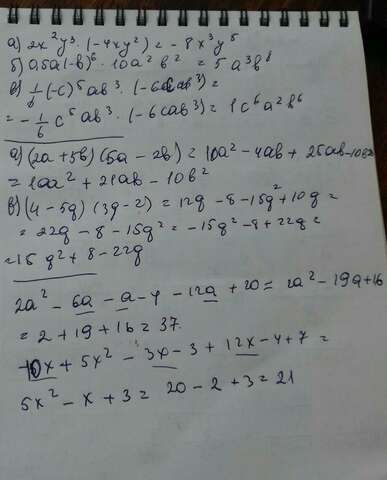 а) 2x²y³ · (-4xy²) = -8x³y⁵
б) 0,5a(-b)⁶ · 10a²b² = 5a³b⁸
в) 1/6 (-c)⁵ab³ · (-6cab³) =
= -1/6 c⁵ab³ · (-6cab³) = 1c⁶a²b⁶
а) (2a + 5b)(5a - 2b) = 10a² - 4ab + 25ab - 10b²
= 10a² + 21ab - 10b²
в) (4 - 5q)(3q - 2) = 12q - 8 - 15q² + 10q =
= 22q - 8 - 15q² = -15q² - 8 + 22q =
= 15q² + 8 - 22q
2a² - 6a - a - 4 - 12a + 20 = 2a² - 19a + 16
= 2 + 19 + 16 = 37.
-10x + 5x² - 3x - 3 + 12x - 4 + 7 =
5x² - x + 3 = 20 - 2 + 3 = 21